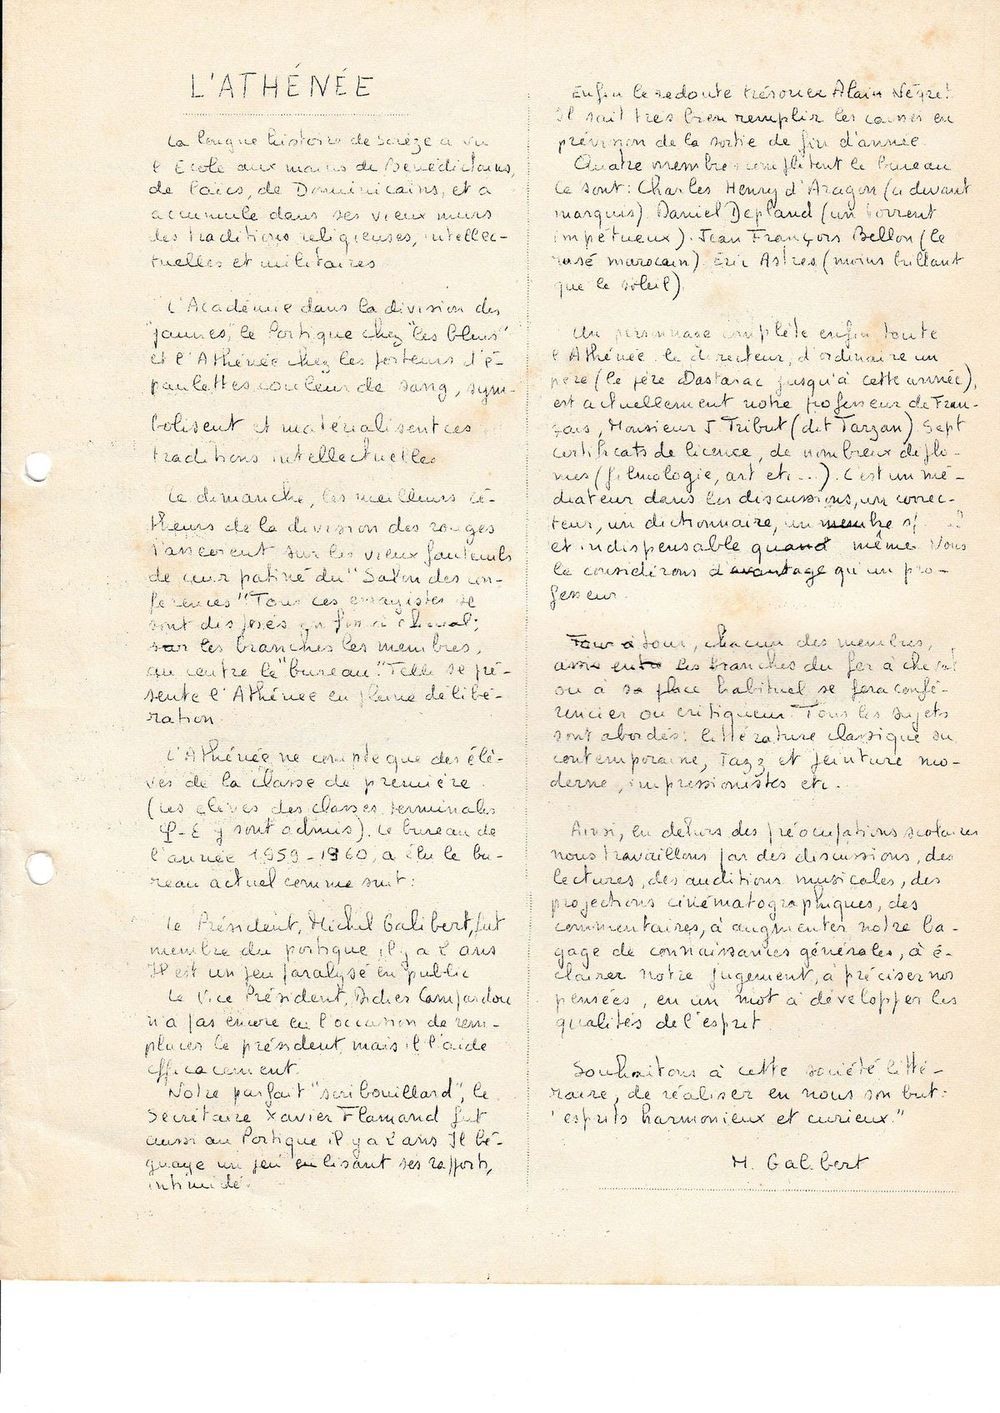 L'ATHÉNÉE
La longue histoire de Sorèze a vu
l'Ecole aux mains de Bénédictins,
de laïcs, de Dominicains, et a
accumulé dans ses vieux murs
des traditions religieuses, intellec-
tuelles et militaires
L'Académie dans la division des
"jaunes", le Portique chez "les bleus"
et l'Athénée chez les porteurs d'é-
paulettes couleur de sang, sym-
bolisent et matérialisent ces
traditions intellectuelles
Le dimanche, les meilleurs lé-
theurs de la division des rouges
s'ancrent sur les vieux fauteuils
de cuir patiné du "Salon des con-
férences". Tous ces essayistes se
sont disposés en fer à cheval;
sur les branches les membres,
au centre le "bureau". Telle se pré-
sente l'Athénée en pleine délibé-
ration.
L'Athénée ne compte que des élè-
ves de la classe de première
(les élèves des classes terminales
y sont admis). Le bureau de
l'année 1959-1960, a élu le bu-
reau actuel comme suit:
Le Président, Michel Galibert, fut
membre du portique il y a 2 ans
Il est un peu paralysé en public
Le Vice Président, Didier Campardou
n'a pas encore eu l'occasion de rem-
placer le président, mais il l'aide
efficacement.
Notre parfait "scribouillard", le
Secrétaire Xavier Flamand fut
aussi au Portique il y a 2 ans Il bé-
guaye un peu en lisant ses rapports,
intimidé.
Enfin le redouté trésorier Alain Nègre!
Il sait très bien remplir les caisses en
prévision de la sortie de fin d'année.
Quatre membres complètent le bureau
Ce sont: Charles Henry d'Aragon (ci devant
marquis). Daniel Depland (un torrent
impétueux). Jean François Bellon (le
rusé marocain) Eric Astres (moins brillant
que le soleil).
Un personnage complète enfin toute
l'Athénée. le directeur, d'ordinaire un
père (le père Dastarac jusqu'à cette année),
est actuellement notre professeur de Fran-
çais, Monsieur J Tribut (dit Tarzan) Sept
certificats de licence, de nombreux diplô-
mes (filmologie, art etc...). C'est un mé-
diateur dans les discussions, un correc-
teur, un dictionnaire, un membre
et indispensable quand même Nous
le considérons d'avantage qu'un pro-
fesseur.
Tour à tour, chacun des membres,
assis entre les branches du fer à cheval
ou à sa place habituel se fera confé-
rencier ou critiqueur. Tous les sujets
sont abordés: littérature classique ou
contemporaine, Jazz et peinture mo-
derne, impressionistes etc.
Ainsi, en dehors des préocupations scolaires
nous travaillons par des discussions, des
lectures, des auditions musicales, des
projections cinématographiques, des
commentaires, à augmenter notre ba-
gage de connaissances générales, à é-
clairer notre jugement, à préciser nos
pensées, en un mot à développer les
qualités de l'esprit
Souhaitons à cette société litté-
raire, de réaliser en nous son but:
"esprits harmonieux et curieux."
M. Galibert